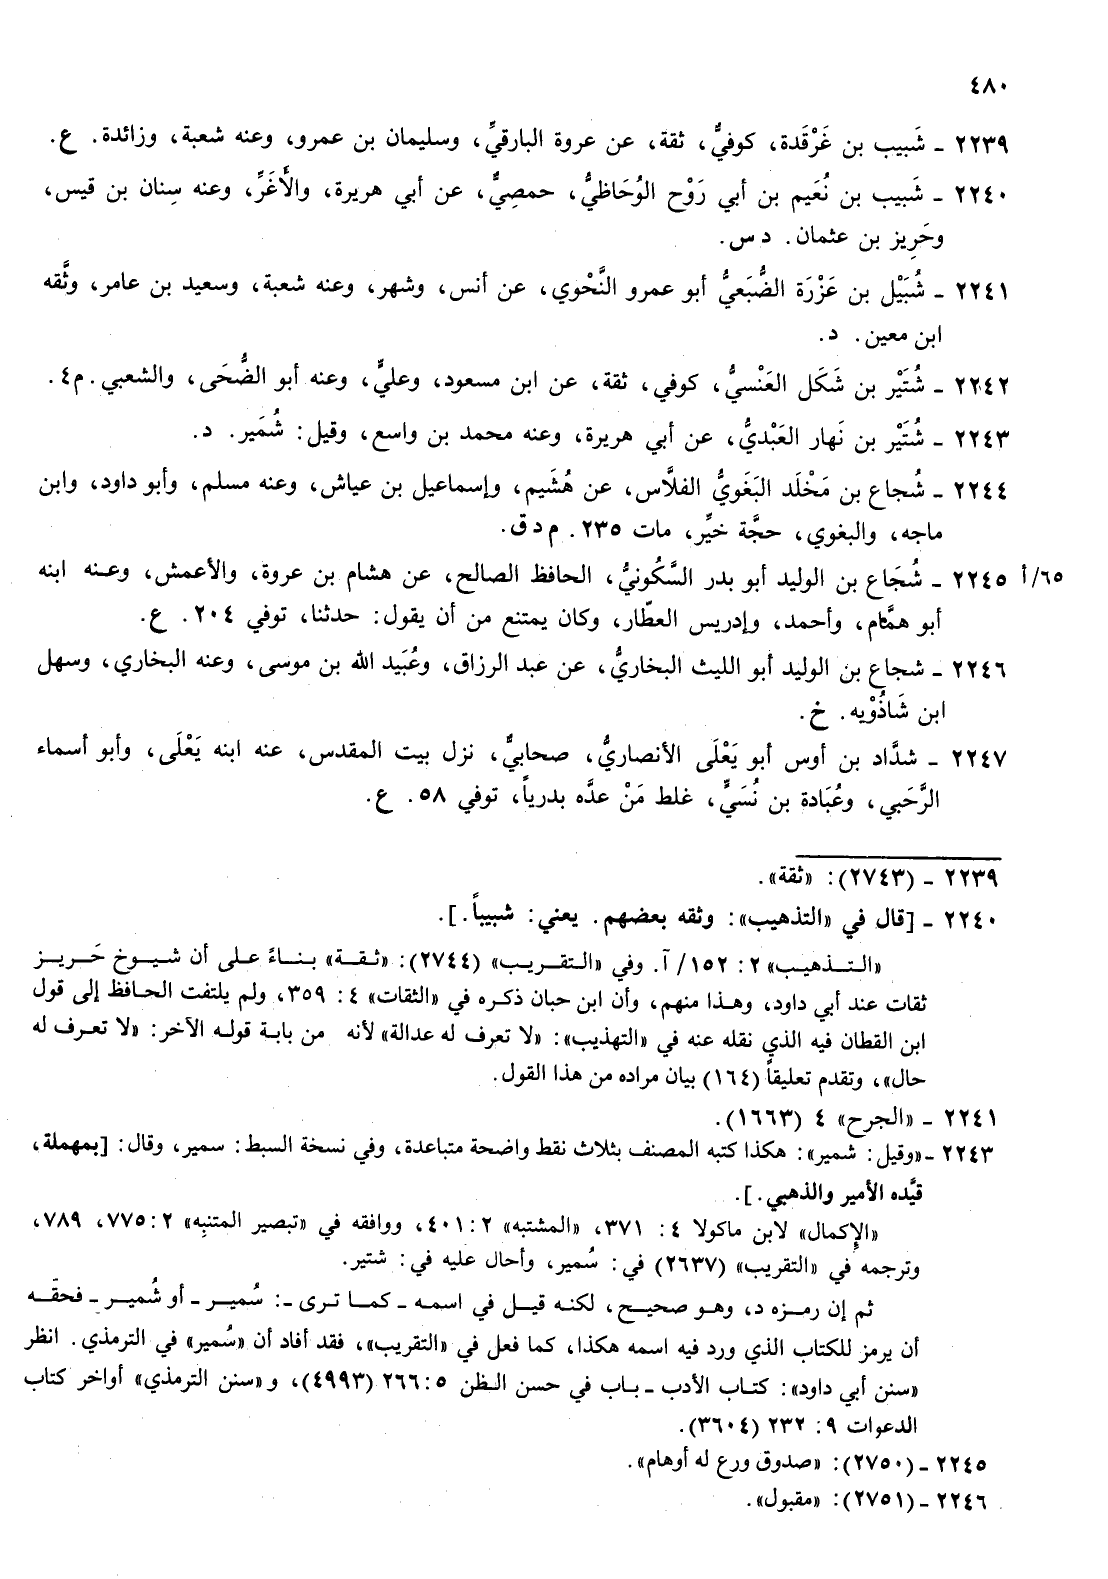 ٤٨٠
٢٢٣٩ ـ شَبيب بن غَرْقَدة، كوفيٌّ، ثقة، عن عروة البارقيِّ، وسليمان بن عمرو، وعنه شعبة، وزائدة. ع.
٢٢٤٠ ـ شَبيب بن نُعَيم بن أبي رَوْح الوُحَاظيُّ، حمصِيٌّ، عن أبي هريرة، والأَغَرِّ، وعنه سِنان بن قيس،
وحَرِيز بن عثمان. د س.
٢٢٤١ ـ شُبَيْل بن عَزْرَة الضُّبَعيُّ أبو عمرو النَّحْوي، عن أنس، وشهر، وعنه شعبة، وسعيد بن عامر، وثَّقه
ابن معين. د.
٢٢٤٢ ـ شُتَيْر بن شَكَل العَنْسيُّ، كوفي، ثقة، عن ابن مسعود، وعليٍّ، وعنه أبو الضُّحَى، والشعبي. م٤.
٢٢٤٣ ـ شُتَيْر بن نَهار العَبْديُّ، عن أبي هريرة، وعنه محمد بن واسع، وقيل: شُمَير. د.
٢٢٤٤ ـ شُجاع بن مَخْلَد البَغَويُّ الفلَّاس، عن هُشَيم، وإسماعيل بن عياش، وعنه مسلم، وأبو داود، وابن
ماجه، والبغوي، حجَّة خيِّر، مات ٢٣٥. م د ق.
٢٢٤٥ ـ شُجَاع بن الوليد أبو بدر السَّكُونيُّ، الحافظ الصالح، عن هشام بن عروة، والأعمش، وعنه ابنه
٦٥/أ
أبو همَّام، وأحمد، وإدريس العطّار، وكان يمتنع من أن يقول: حدثنا، توفي ٢٠٤. ع.
٢٢٤٦ ـ شجاع بن الوليد أبو الليث البخاريُّ، عن عبد الرزاق، وعُبَيد الله بن موسى، وعنه البخاري، وسهل
ابن شَاذُوْيه. خ.
٢٢٤٧ ـ شدَّاد بن أوس أبو يَعْلَى الأنصاريُّ، صحابيٌّ، نزل بيت المقدس، عنه ابنه يَعْلَى، وأبو أسماء
الرَّحَبي، وعُبَادة بن نُسَيٍّ، غلط مَنْ عدَّه بدرياً، توفي ٥٨. ع.
٢٢٣٩ ـ (٢٧٤٣): «ثقة».
٢٢٤٠ ـ [قال في «التذهيب»: وثقه بعضهم. يعني: شبيباً.].
«التذهيب» ٢: ١٥٢/آ. وفي «التقريب» (٢٧٤٤): «ثقة» بناءً على أن شيوخ حَريز
ثقات عند أبي داود، وهذا منهم، وأن ابن حبان ذكره في «الثقات» ٤: ٣٥٩، ولم يلتفت الحافظ إلى قول
ابن القطان فيه الذي نقله عنه في «التهذيب»: «لا تعرف له عدالة» لأنه من بابة قوله الآخر: «لا تعرف له
حال»، وتقدم تعليقاً (١٦٤) بيان مراده من هذا القول.
٢٢٤١ ـ «الجرح» ٤ (١٦٦٣).
٢٢٤٣ ـ «وقيل: شمير»: هكذا كتبه المصنف بثلاث نقط واضحة متباعدة، وفي نسخة السبط: سمير، وقال: [بمهملة،
قيَّده الأمير والذهبي.].
«الإِكمال» لابن ماكولا ٤: ٣٧١، «المشتبه» ٢: ٤٠١، ووافقه في «تبصير المتنبِه» ٢: ٧٧٥، ٧٨٩،
وترجمه في «التقريب» (٢٦٣٧) في: سُمير، وأحال عليه في: شتير.
ثم إن رمزه د، وهو صحيح، لكنه قيل في اسمه ـ كما ترى ـ: سُمير ـ أو شُمير ـ فحقّه
أن يرمز للكتاب الذي ورد فيه اسمه هكذا، كما فعل في «التقريب»، فقد أفاد أن «سُمير» في الترمذي. انظر
«سنن أبي داود»: كتاب الأدب ـ باب في حسن الظن ٥: ٢٦٦ (٤٩٩٣)، و«سنن الترمذي» أواخر كتاب
الدعوات ٩: ٢٣٢ (٣٦٠٤).
٢٢٤٥ ـ (٢٧٥٠): «صدوق ورع له أوهام».
٢٢٤٦ ـ (٢٧٥١): «مقبول».